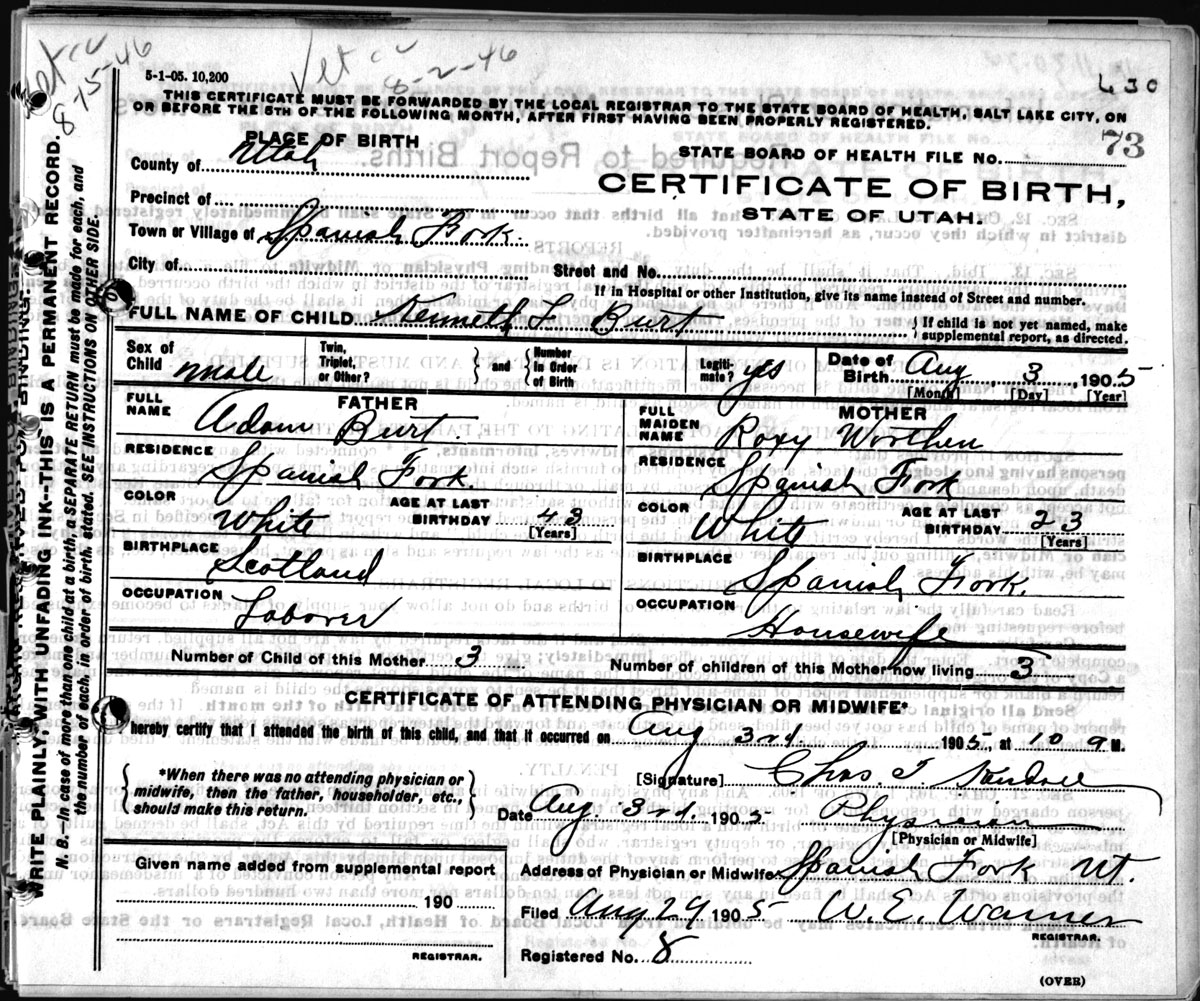 Vet cu
8-15-46
Vet cu
8-2-46
5-1-05. 10,200
630
THIS CERTIFICATE MUST BE FORWARDED BY THE LOCAL REGISTRAR TO THE STATE BOARD OF HEALTH, SALT LAKE CITY, ON
OR BEFORE THE 5TH OF THE FOLLOWING MONTH, AFTER FIRST HAVING BEEN PROPERLY REGISTERED.
PLACE OF BIRTH
STATE BOARD OF HEALTH FILE No. 73
County of Utah
CERTIFICATE OF BIRTH,
STATE OF UTAH.
Precinct of
Town or Village of Spanish Fork.
City of
Street and No.
If in Hospital or other Institution, give its name instead of Street and number.
FULL NAME OF CHILD Kenneth L Burt
If child is not yet named, make
supplemental report, as directed.
Sex of Child male Twin, Triplet, or Other? and Number in Order of Birth Legiti-mate? yes Date of Birth Aug 3, 1905
[Month] [Day] [Year]
FATHER
FULL NAME Adam Burt.
RESIDENCE Spanish Fork.
COLOR White AGE AT LAST BIRTHDAY 43
[Years]
BIRTHPLACE Scotland
OCCUPATION Laborer
MOTHER
FULL MAIDEN NAME Roxy Worthen
RESIDENCE Spanish Fork
COLOR White AGE AT LAST BIRTHDAY 23
[Years]
BIRTHPLACE Spanish Fork.
OCCUPATION Housewife
Number of Child of this Mother 3 Number of children of this Mother now living 3
CERTIFICATE OF ATTENDING PHYSICIAN OR MIDWIFE*
hereby certify that I attended the birth of this child, and that it occurred on Aug 3rd. 1905., at 10 a M.
*When there was no attending physician or
midwife, then the father, householder, etc.,
should make this return.
[Signature] Chas T
Date Aug. 3rd. 1905 Physician
[Physician or Midwife]
Given name added from supplemental report
190
REGISTRAR.
Address of Physician or Midwife Spanish Fork Ut.
Filed Aug 29 1905 W. E. Warner
REGISTRAR.
Registered No. 8
(OVER)
WRITE PLAINLY, WITH UNFADING INK--THIS IS A PERMANENT RECORD.
N. B.--In case of more than one child at a birth, a SEPARATE RETURN must be made for each, and
the number of each, in order of birth, stated. SEE INSTRUCTIONS ON OTHER SIDE.